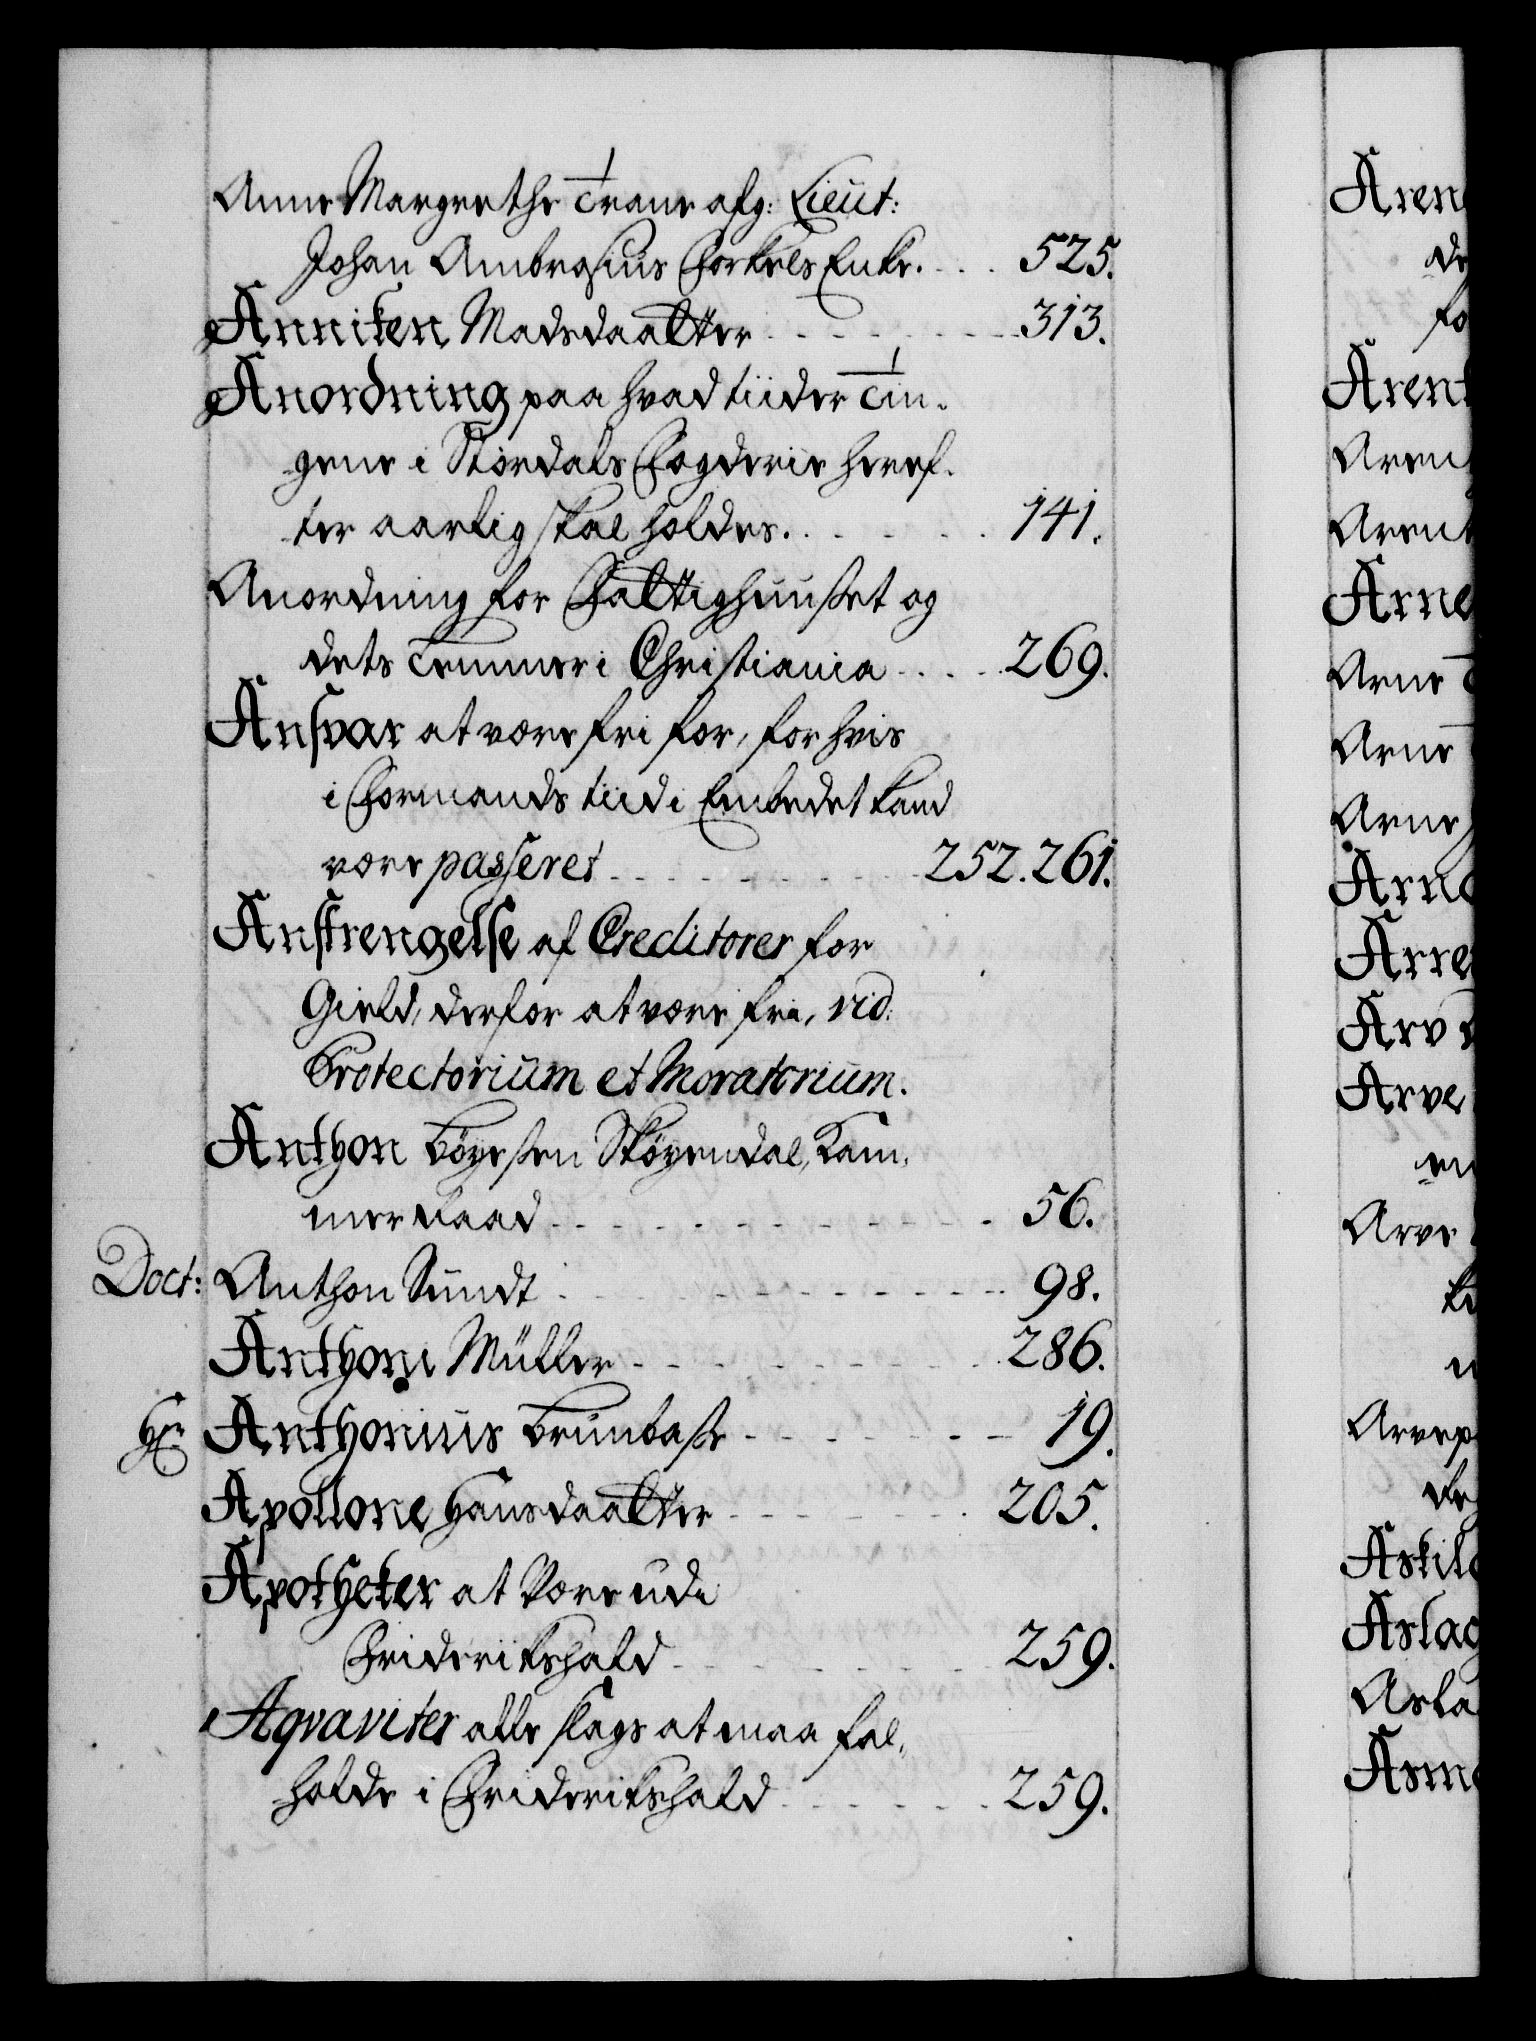 Anne Margrethe Trane afg: Lieut:
Johan Ambrosius Forkels Enke. . . . 525.
Anniken Madsdaatter . . . . . . . . 313.
Anordning paa hvad tiider Tin-
gene i Størdals Fogderie heref-
ter aarlig skal holdes. . . . . . . 141.
Anordning for Fattighuuset og
dets Lemmer i Christiania . . . . . 269.
Ansvar at være fri for, for hvis
i Formands tiid i Embedet kand
være passeret . . . . . . . . 252. 261.
Anstrengelse af Creditorer for
Gield, derfor at være fri, vid:
Protectorium et Moratorium.
Anthon Böyesen Skøyendal, Kam-
merraad . . . . . . . . . 56.
Doct: Anthon Sundt . . . . . . . . . 98.
Anthoni Müller . . . . . . . . . 286.
Hr: Anthonius Brunbasse . . . . . . 19.
Apollone Hansdaatter . . . . . . . . 205.
Apotheker at Være udi
Friderikshald . . . . . . . . 259.
Aqvaviter alle slags at maa fal-
holde i Friderikshald . . . . . . 259.
Aren
de
fo
Arent
Aren
Arent
Arne
Arne
Arne
Arne
Arno
Arre
Arv
Arve
en
Arve
Arvep
de
Askil
Aslag
Asla
Asm